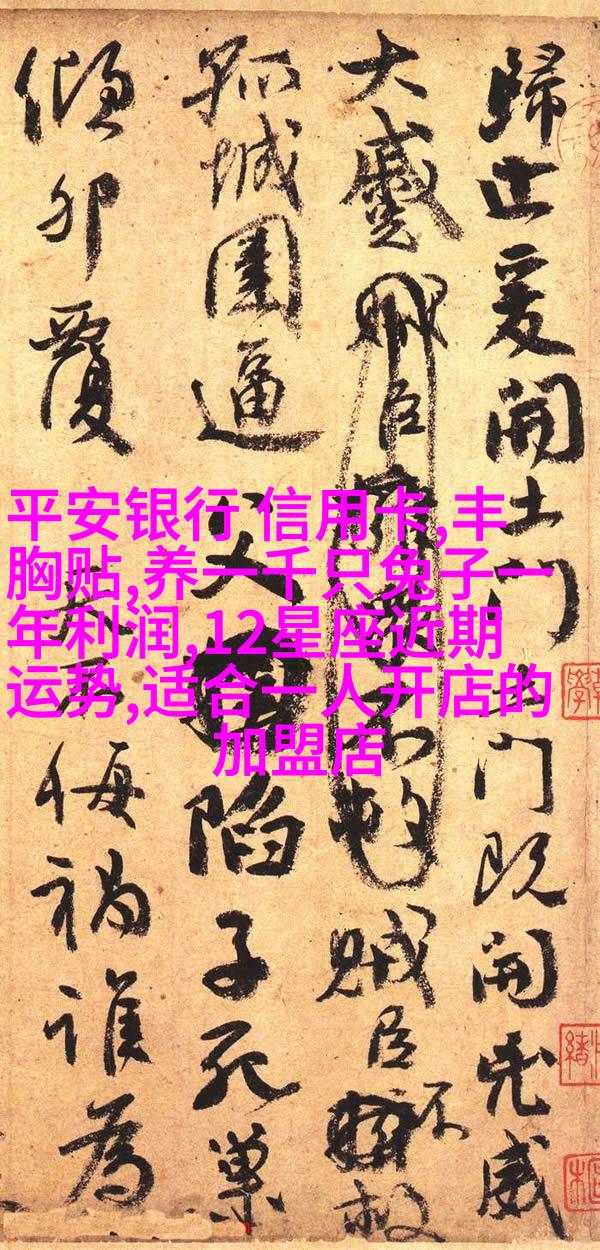 平安银行 信用卡,丰
胸贴,养一千只兔子一
年利润,12星座近期
运势,适合一人开店的
加盟店
歸止爰開土門土門既開兇威
大蹙賊臣賊臣不救
孤城圍逼父陷子死巢
傾卵覆天不悔禍誰為